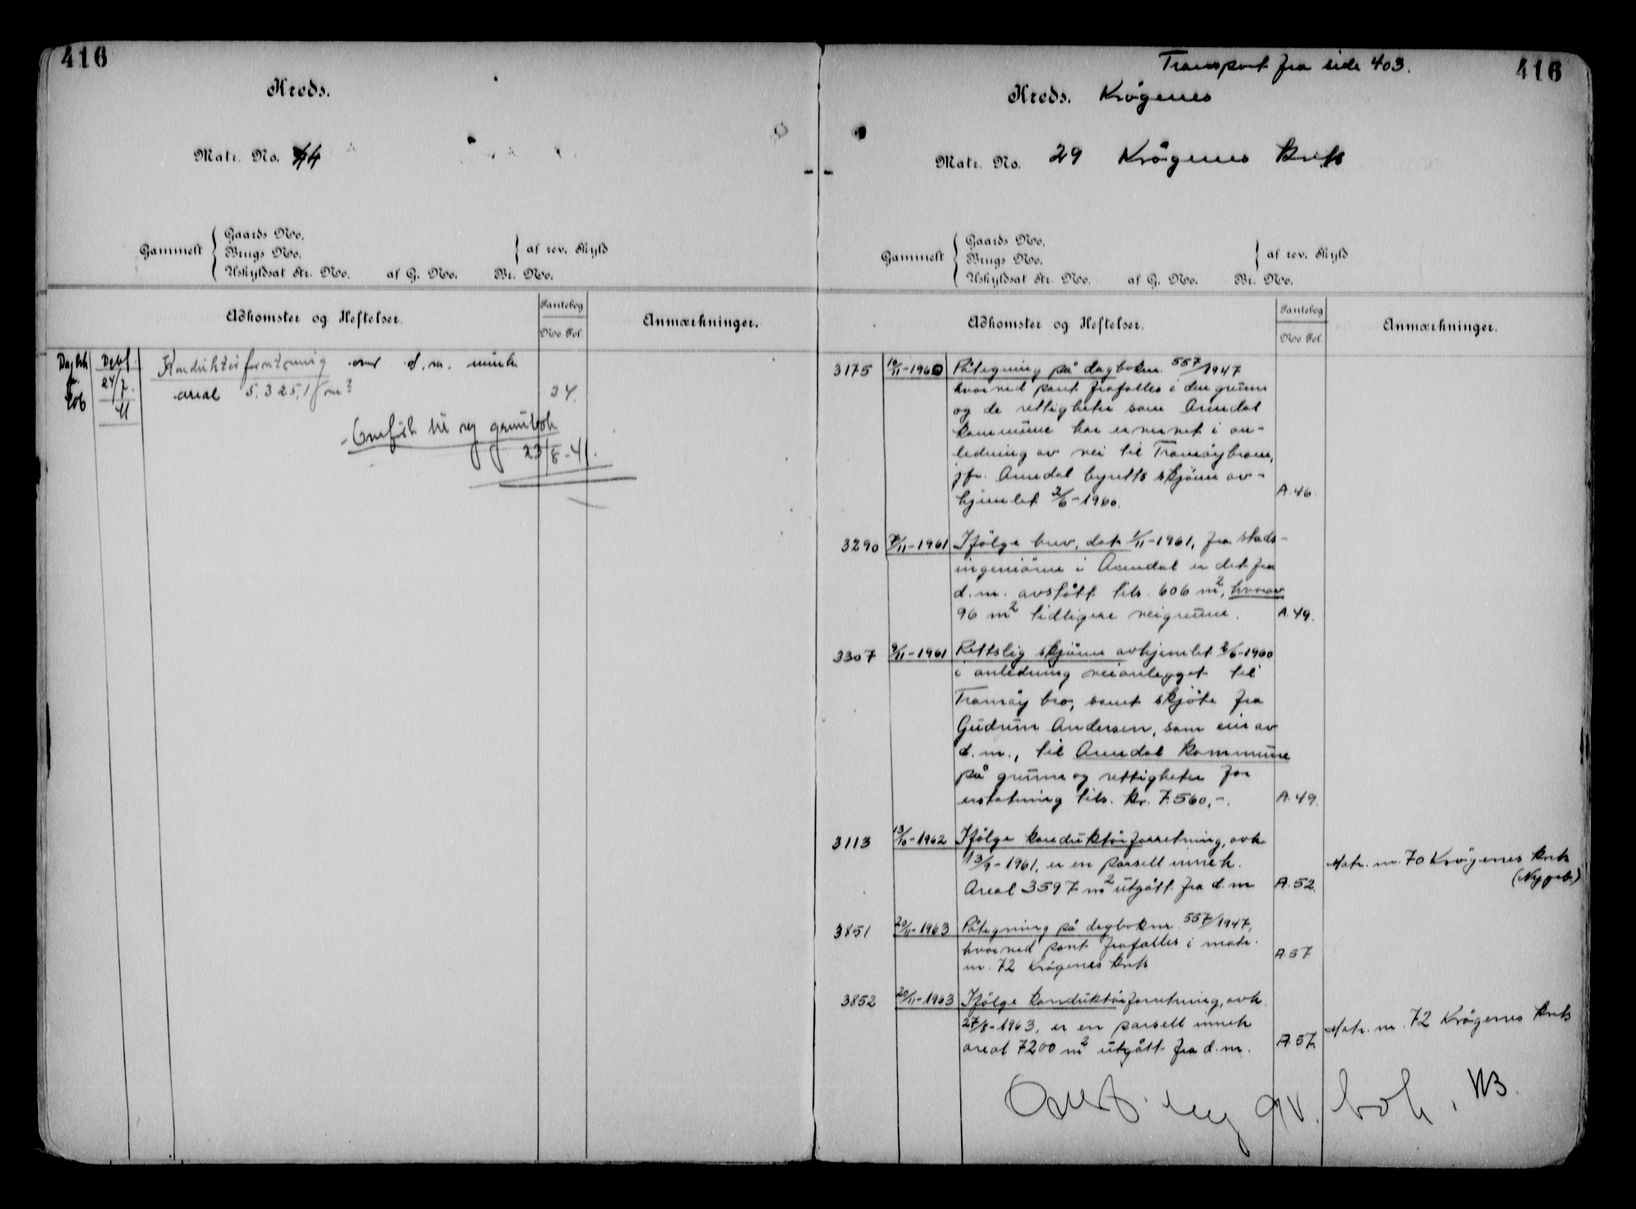 416
Kreds.
Matr. No. 44
Gammelt
Gaards No.
Brugs No.
Uskyldsat Str. No. af G. No. Br. No.
af rev. Skyld
Adkomster og Heftelser.
Pantebog
No. Fol.
Anmærkninger.
Dagbok Debf
24/7 41
Konduktörforretning over d. m. inneh.
areal 5.325,1 m²
34.
Overfört til ny grunnbok
23/8-41.
Transport fra side 403.
416
Kreds. Krögenes
Matr. No. 29 Krögenes krets
Gammelt
Gaards No.
Brugs No.
Uskyldsat Str. No. af G. No. Br. No.
af rev. Skyld
Adkomster og Heftelser.
Pantebog
No. Fol.
Anmærkninger.
3175 10/11-1960 Påtegning på dagboknr. 557/1947
hvorved pant frafalles i den grunn
og de rettigheter som Arendal
kommune har ervervet i an-
ledning av vei til Tromöybroen,
jfr. Arendal byretts skjönn av-
hjemlet 2/6-1960. A.46.
3290 7/11-1961 Ifölge brev, dat. 1/11-1961, fra stads-
ingeniören i Arendal er det fra
d.m. avstått tils. 606 m², hvorav
96 m² tidligere veigrunn. A.49.
3307 9/11-1961 Rettslig skjönn avhjemlet 2/6-1960
i anledning veianlegget til
Tromöy bro, samt skjöte fra
Gudrun Andersen, som eier av
d.m., til Arendal kommune
på grunn og rettigheter for
erstatning tils. kr. 7.560,-. A.49.
3113 13/10-1962 Ifölge konduktörforretning, avh.
13/9-1961, er en parsell inneh.
Areal 3597 m² utgått fra d.m A.52. Matr. nr. 70 Krögenes krets
(Nygrb.)
3851 20/11-1963 Påtegning på dagboknr. 557/1947,
hvorved pant frafalles i matr.
nr. 72 Krögenes krets A.57
3852 20/11-1963 Ifölge konduktörforretning, avh.
27/8-1963, er en parsell inneh
areal 7200 m² utgått fra d.m. A.57. Matr. nr. 72 Krögenes krets
Overf. ny gr. bok. NB.